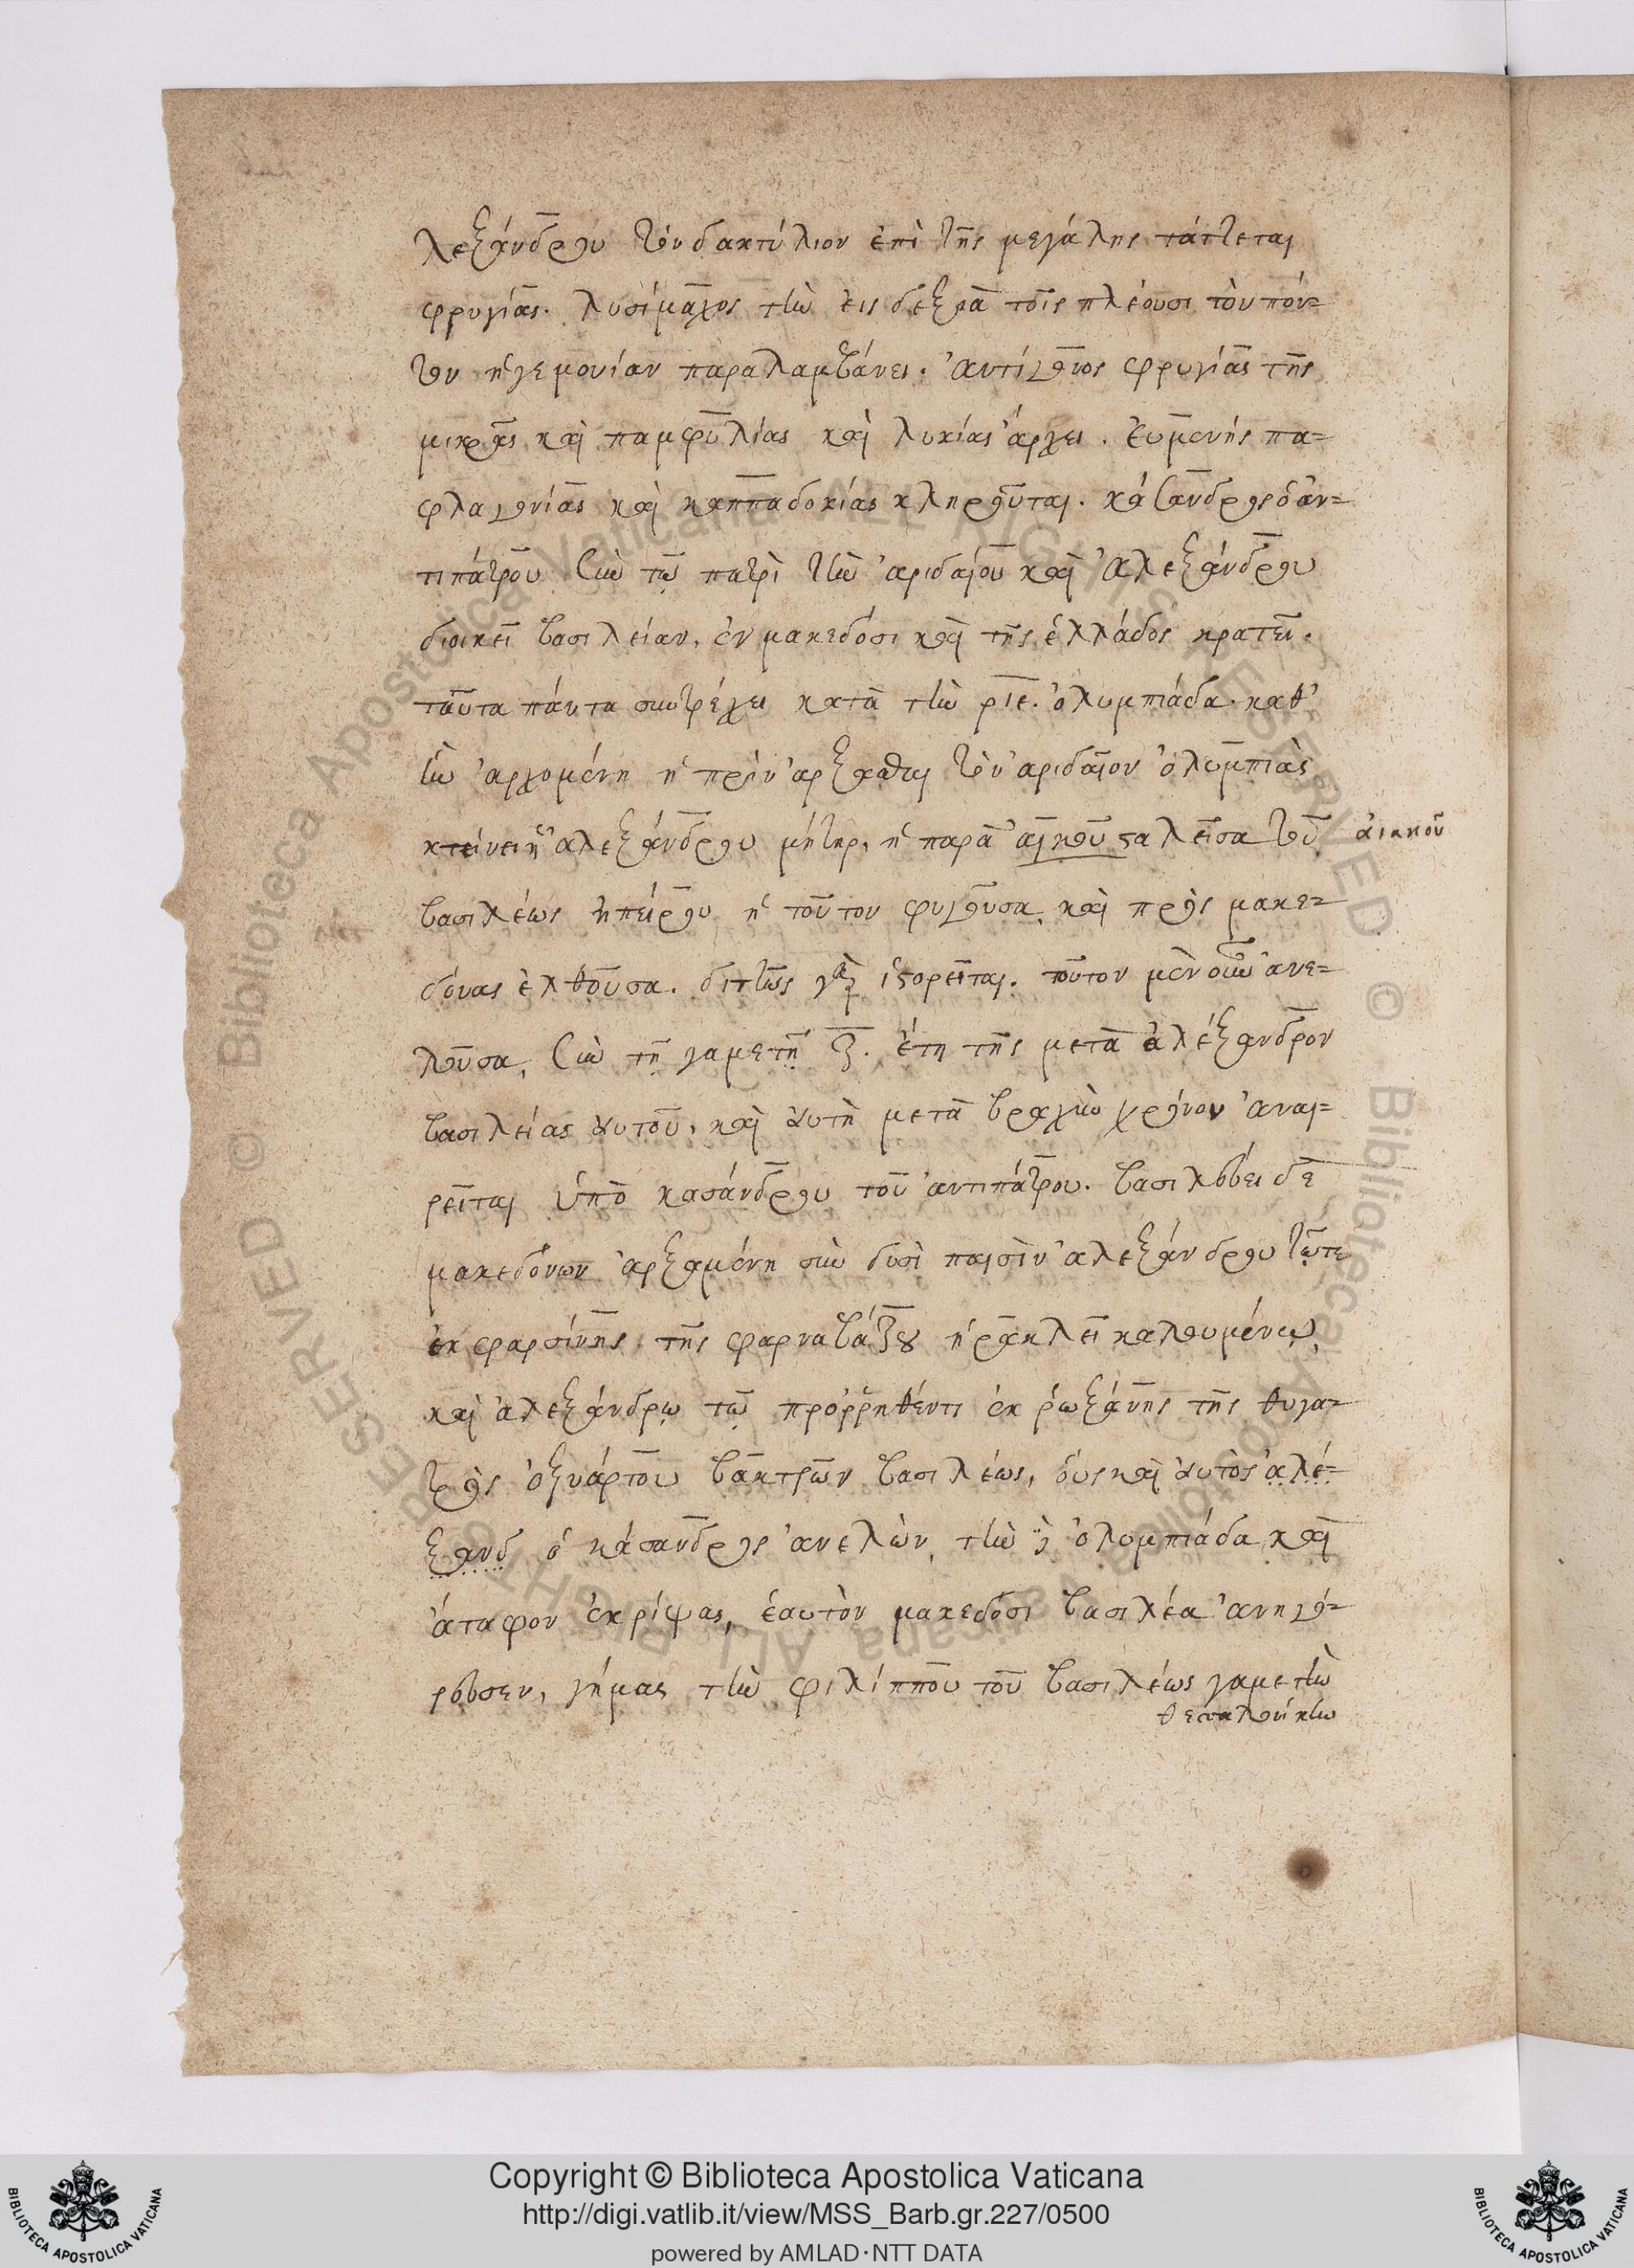 λεξάνδρου τὸν δακτύλιον ἐπὶ τῆς μεγάλης τάττεται
φρυγίας. λυσίμαχος τὴν εἰς δεξιὰ τοῖς πλέουσι τὸν πόν=
τον ἡγεμονίαν παραλαμβάνει. ἀντίγονος φρυγίας τῆς
μικρᾶς καὶ παμφυλίας καὶ λυκίας ἄρχει. ἐυμενής πα=
φλαγονίας καὶ καππαδοκίας κληροῦται. κάσανδρος ὁ ἀν=
τιπάτρου σὺν τῷ πατρὶ τὴν ἀριδαίου καὶ ἀλεξάνδρου
διοικεῖ βασιλείαν, ἐν μακεδόσι καὶ τῆς ἑλλάδος κρατεῖ.
ταῦτα πάντα συντρέχει κατὰ τὴν ριε. ὀλυμπιάδα. καθ'
ἣν ἀρχομένη ἡ πρὶν ἄρξασθαι τὸν ἀριδαῖον ὀλυμπιὰς
κτείνει ἡ ἀλεξάνδρου μήτηρ, ἡ παρὰ αἰκοῦ σταλεῖσα τοῦ
ἀιακοῦ
βασιλέως ἠπείρου ἡ τοῦτον φυγοῦσα, καὶ πρὸς μακε=
δόνας ἐλθοῦσα. διττῶς γὰρ ἱστορεῖται. τοῦτον μὲν οὖν ἀνε=
λοῦσα, σὺν τῇ γαμετῇ ζ. ἔτη τῆς μετὰ ἀλέξανδρον
βασιλείας ἀυτοῦ, καὶ ἀυτὴ μετὰ βραχὺν χρόνον ἀναι=
ρεῖται ὑπὸ κασάνδρου τοῦ ἀντιπάτρου. βασιλεύει δὲ
μακεδόνων ἀρξαμένη σὺν δυσὶ παισὶν ἀλεξάνδρου τῷτε
ἐκ φαρσίνης τῆς φαρναβάζου ἡρακλεῖ καλουμένῳ,
καὶ ἀλεξάνδρῳ τῷ προῤῥηθέντι ἐκ ῥωξάνης τῆς θυγα=
τρὸς ὀξυάρτου βάκτρων βασιλέως, ὁυς καὶ ἀυτὸς ἀλέ=
ξανδ ὁ κάσανδρος ἀνελὼν, τὴν ὀλυμπιάδα καὶ
ἄταφον ἐκρίψας, ἑαυτὸν μακεδόσι βασιλέα ἀνηγό=
ρευσεν, γήμας τὴν φιλίππου τοῦ βασιλέως γαμετὴν
θεσσαλονίκην
Copyright © Biblioteca Apostolica Vaticana
http://digi.vatlib.it/view/MSS_Barb.gr.227/0500
powered by AMLAD·NTT DATA